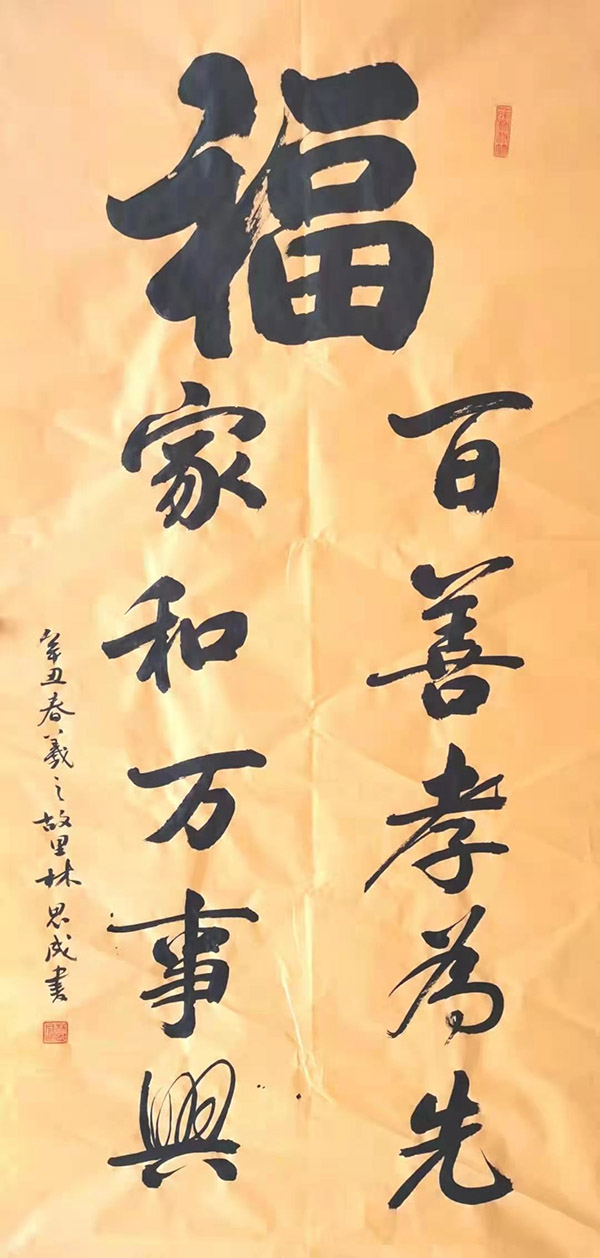 福
百善孝為先
家和万事興
辛丑春羲之故里林思成书